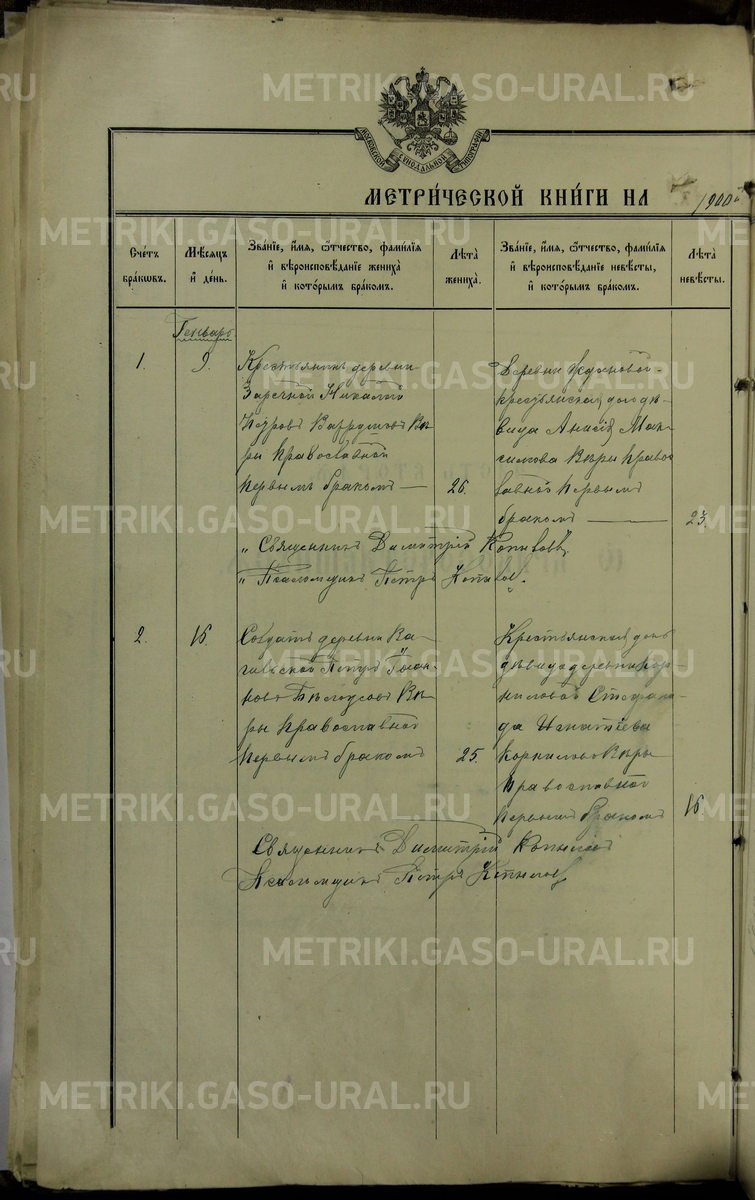 METRIKI.GASO-URAL.RU
МОСКОВСКОЙ СѴНОДАЛЬНОЙ ТИПОГРАФІИ
МЕТРИ́ЧЕСКОЙ КНИ́ГИ НА 1900й
Сче́тъ бра́кѡвъ.
Мѣ́сяцъ и҆ де́нь.
Зва́нїе, и҆́мѧ, ѻ҆́тчество, фами́лїѧ
и҆ вѣроисповѣ́данїе жениха̀
и҆ кото́рымъ бра́комъ.
Лѣ́та жениха̀.
Зва́нїе, и҆́мѧ, ѻ҆́тчество, фами́лїѧ
и҆ вѣроисповѣ́данїе невѣ́сты,
и҆ кото́рымъ бра́комъ.
Лѣ́та невѣ́сты.
Генварь
1. 9.
Крестьянинъ деревни
Заречной
Петровъ Вѣ
ры православной
первымъ бракомъ — 26.
Деревни
крестьянская дочь дѣ
вица Анисія Мак
симова Вѣры Правос
лавной первымъ
бракомъ — 23.
„ Священникъ Димитрій Копыловъ
„ Псаломщикъ Петръ Копылов.
2. 16.
Солдатъ деревни Ва
гильской Петръ Іоан
новъ Бѣлоусов Вѣ
ры православной
первымъ бракомъ 25.
Крестьянская дочь
дѣвица деревни Кор
ниловой Стефани
да Игнатіева
Корнилова Вѣры
Православной
первымъ бракомъ 16.
Священникъ Димитрій Копыловъ
Псаломщикъ Петръ Копылов